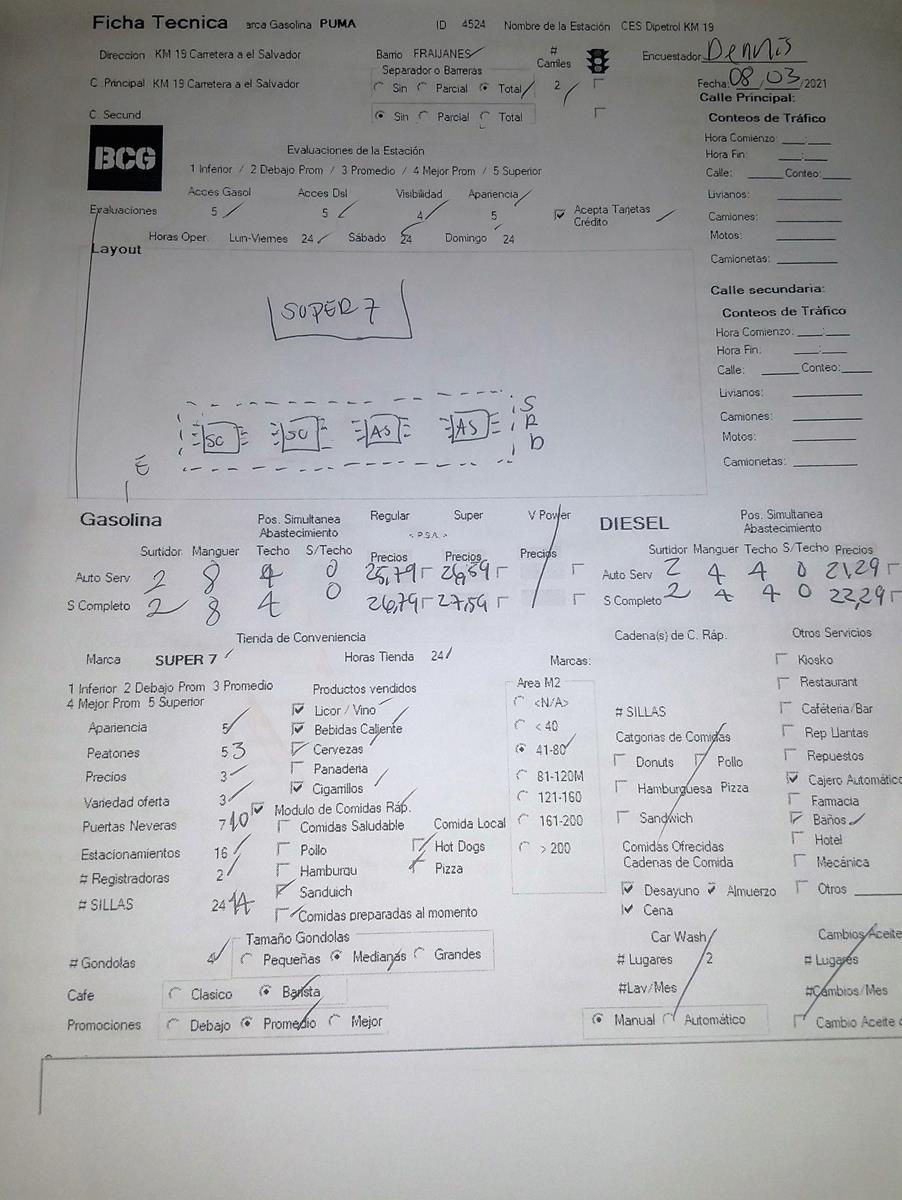 Ficha Tecnica arca Gasolina PUMA ID 4524 Nombre de la Estación CES Dipetrol KM 19
Direccion KM 19 Carretera a el Salvador Barrio FRAIJANES # Carriles Encuestador Dennis
Separador o Barreras
C .Principal KM 19 Carretera a el Salvador Sin Parcial Total 2 Fecha: 08/03/2021
Calle Principal:
C. Secund Sin Parcial Total
Conteos de Tráfico
BCG
Evaluaciones de la Estación
Hora Comienzo ___:___
1 Inferior / 2 Debajo Prom / 3 Promedio / 4 Mejor Prom / 5 Superior
Hora Fin: ___:___
Calle: _____ Conteo:____
Acces Gasol Acces Dsl Visibilidad Apariencia
Livianos: _________
Evaluaciones 5 5 4 5 Acepta Tarjetas Crédito
Camiones: _________
Horas Oper. Lun-Viernes 24 Sábado 24 Domingo 24
Motos: _________
Layout
Camionetas: _________
SUPER 7
Calle secundaria:
Conteos de Tráfico
Hora Comienzo: ___:___
Hora Fin: ___:___
Calle: _____ Conteo:____
Livianos: _________
Camiones: _________
Motos: _________
Camionetas: _________
SC SC AS AS S R D
E
Gasolina Pos. Simultanea Abastecimiento Regular Super V Power DIESEL Pos. Simultanea Abastecimiento
< P.S.A. >
Surtidor Manguer Techo S/Techo Precios Precios Precios Surtidor Manguer Techo S/Techo Precios
Auto Serv 2 8 4 0 25,79 26,59 Auto Serv 2 4 4 0 21,29
S Completo 2 8 4 0 26,79 27,59 S Completo 2 4 4 0 22,29
Tienda de Conveniencia Cadena(s) de C. Ráp. Otros Servicios
Marca SUPER 7 Horas Tienda 24 Marcas: Kiosko
1 Inferior 2 Debajo Prom 3 Promedio
4 Mejor Prom 5 Superior
Productos vendidos Area M2 Restaurant
Licor / Vino <N/A> # SILLAS Caféteria/Bar
Apariencia 5 Bebidas Caliente < 40 Catgorias de Comidas Rep Llantas
Peatones 5 3 Cervezas 41-80 Donuts Pollo Repuestos
Precios 3 Panaderia 81-120M Hamburguesa Pizza Cajero Automático
Variedad oferta 3 Cigarrillos 121-160 Farmacia
Modulo de Comidas Ráp.
Puertas Neveras 7 10 Comidas Saludable Comida Local 161-200 Sandwich Baños
Estacionamientos 16 Pollo Hot Dogs > 200 Comidas Ofrecidas Cadenas de Comida Hotel
# Registradoras 2 Hamburgu Pizza Mecánica
# SILLAS 24 14 Sanduich Desayuno Almuerzo Otros ______
Comidas preparadas al momento Cena
Tamaño Gondolas Car Wash Cambios Aceite
# Gondolas 4 Pequeñas Medianas Grandes # Lugares 2 # Lugares
Cafe Clasico Barista #Lav/Mes #Cambios/Mes
Promociones Debajo Promedio Mejor Manual Automático Cambio Aceite